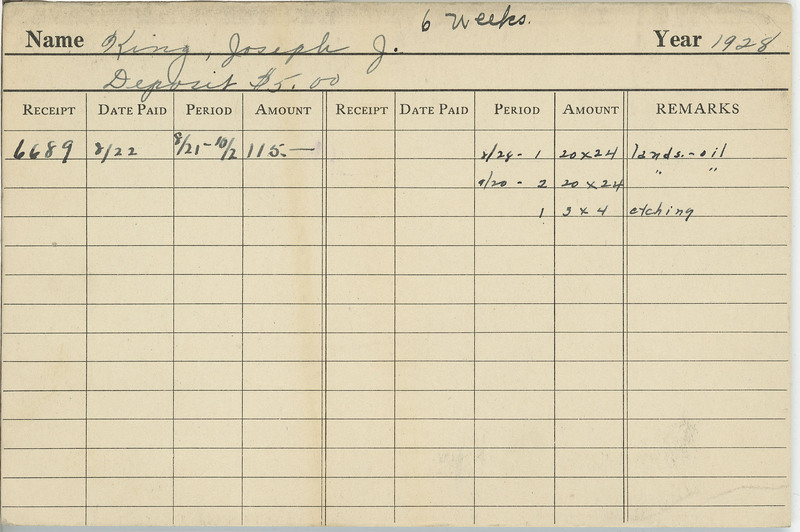 6 Weeks.
Name King, Joseph J. Year 1928
Deposit $5.00
RECEIPT DATE PAID PERIOD AMOUNT RECEIPT DATE PAID PERIOD AMOUNT REMARKS
6689 8/22 8/21-10/2 115.— 8/28 - 1 20x24 lands.-oil
9/20 - 2 20x24 " "
1 3x4 etching